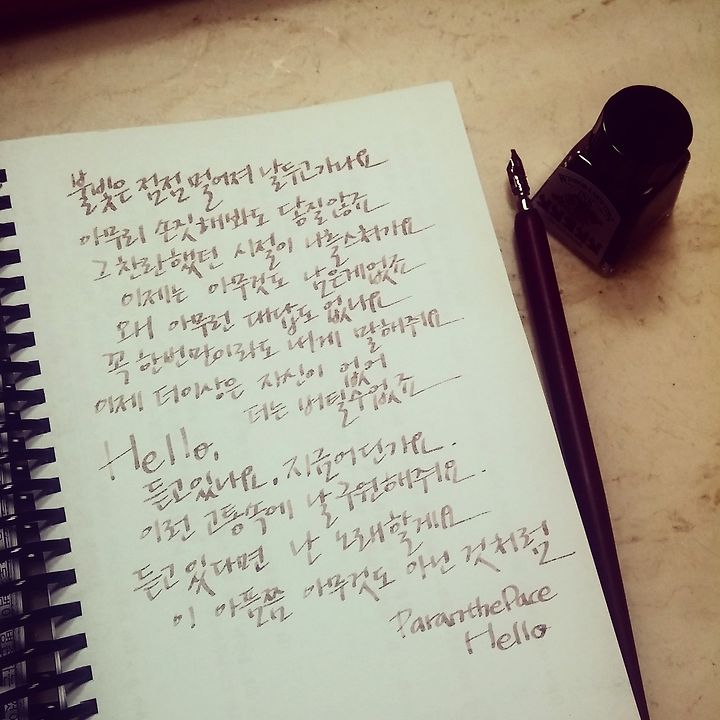 불빛은 점점 멀어져 날두고가나요
아무리 손짓해봐도 닿질않죠
그 찬란했던 시절이 나를스쳐가요
이제는 아무것도 남은게없죠
왜 아무런 대답도 없나요
꼭 한번만이라도 내게 말해줘요
이제 더이상은 자신이 없어
더는 버틸수없죠
Hello,
듣고있나요. 지금어딘가요.
이런 고통속에 날 구원해줘요.
듣고 있다면 난 노래할게요
이 아픔쯤 아무것도 아닌 것처럼
ParanthePace
Hello